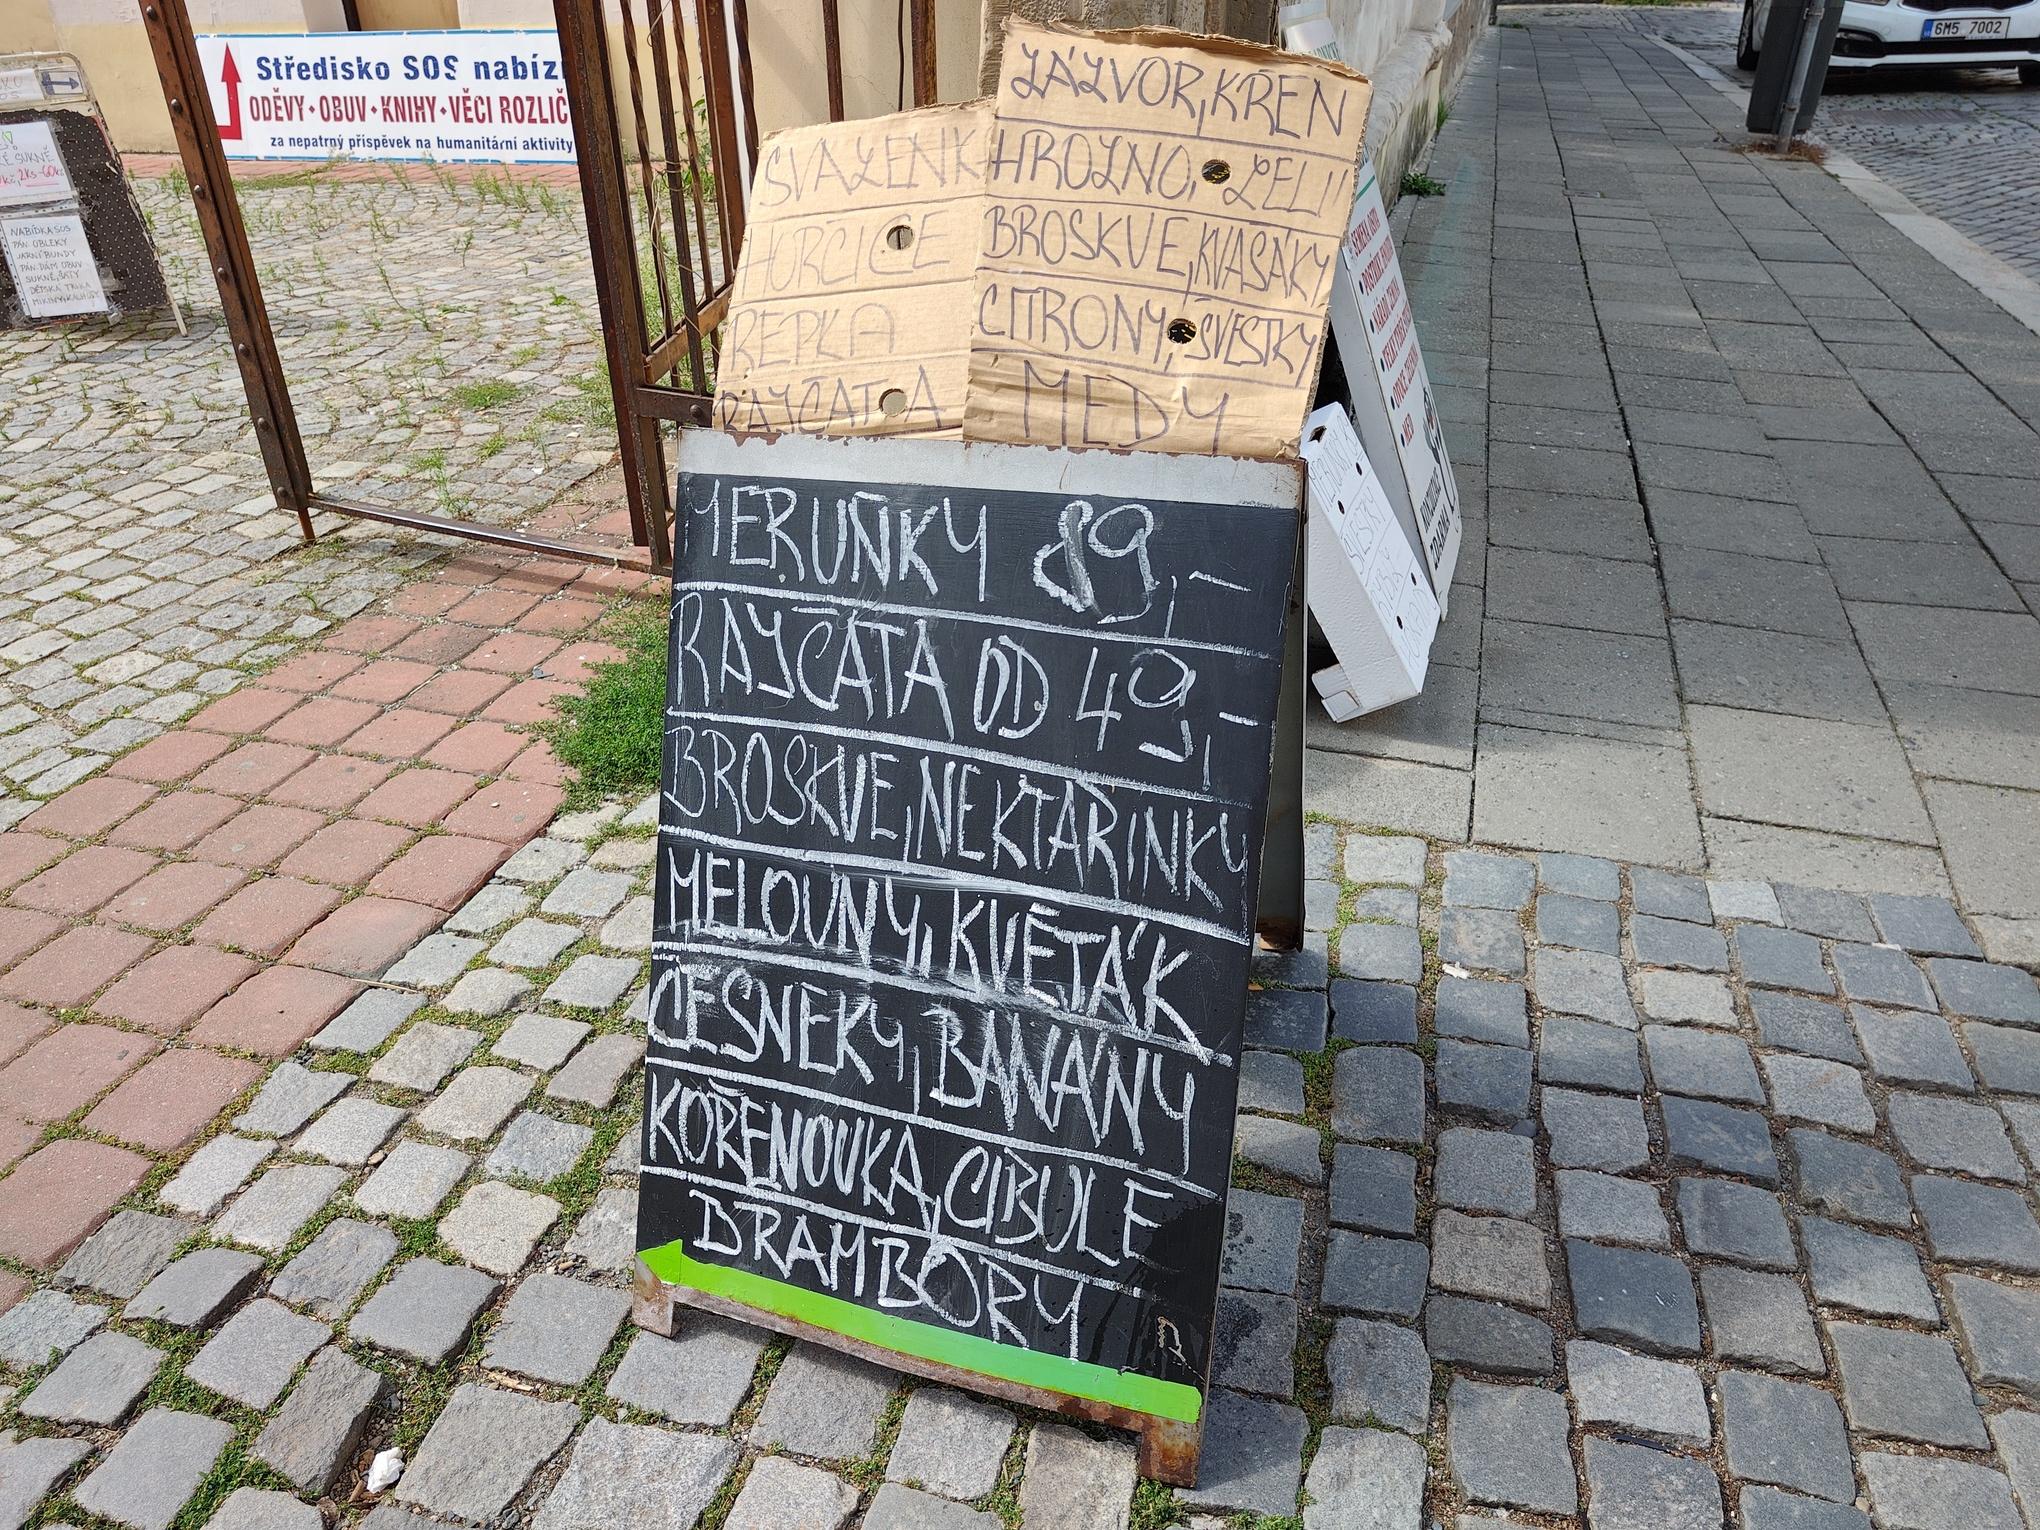 Středisko SOS nabízí
ODĚVY • OBUV • KNIHY • VĚCI ROZLIČ
za nepatrný příspěvek na humanitární aktivity
SUKNĚ
2KS-60Kč
NABÍDKA SOS
PÁN. OBLEKY
JARNÍ BUNDY
PÁN. DÁM. OBUV
SUKNĚ, ŠATY
DĚTSKÁ TRIKA
6M5 7002
ZÁZVOR, KŘEN
HROZNO, ZELÍ
BROSKVE, KVASÁKY
CITRONY, ŠVESTKY
MEDY
SVAZENK
HOŘČICE
ŘEPKA
RAJČATA
MERUŇKY 89,-
RAJČATA OD 49,-
BROSKVE, NEKTARINKY
MELOUNY, KVĚTÁK
ČESNEKY, BANÁNY
KOŘENOVKA, CIBULE
BRAMBORY
MED
ZDARMA
ŠVESTKY